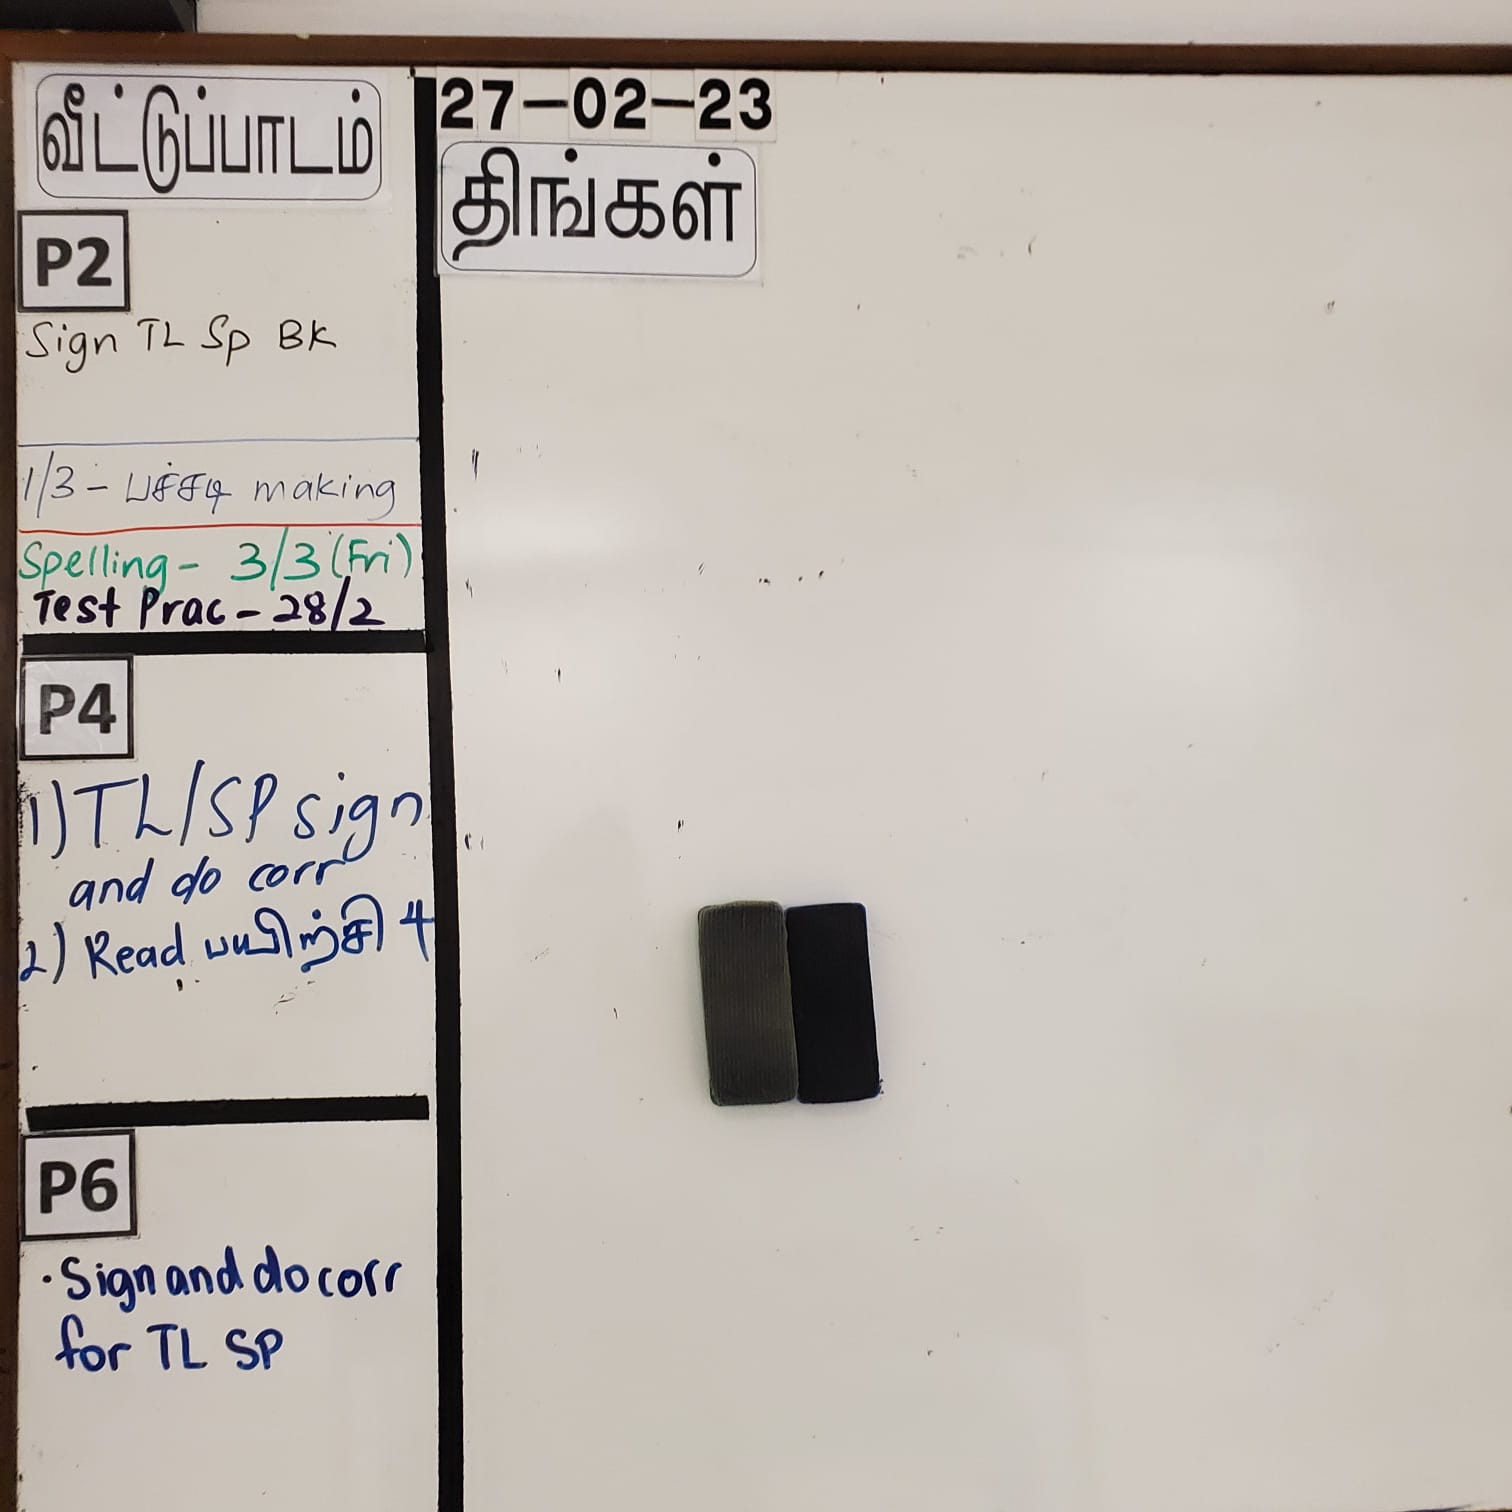 வீட்டுப்பாடம்
27-02-23
திங்கள்
P2
Sign TL Sp BK
1/3 - பச்சடி making
Spelling - 3/3 (Fri)
Test Prac - 28/2
P4
1) TL/SP sign
and do corr
2) Read பயிற்சி 4
P6
· Sign and do corr
for TL SP